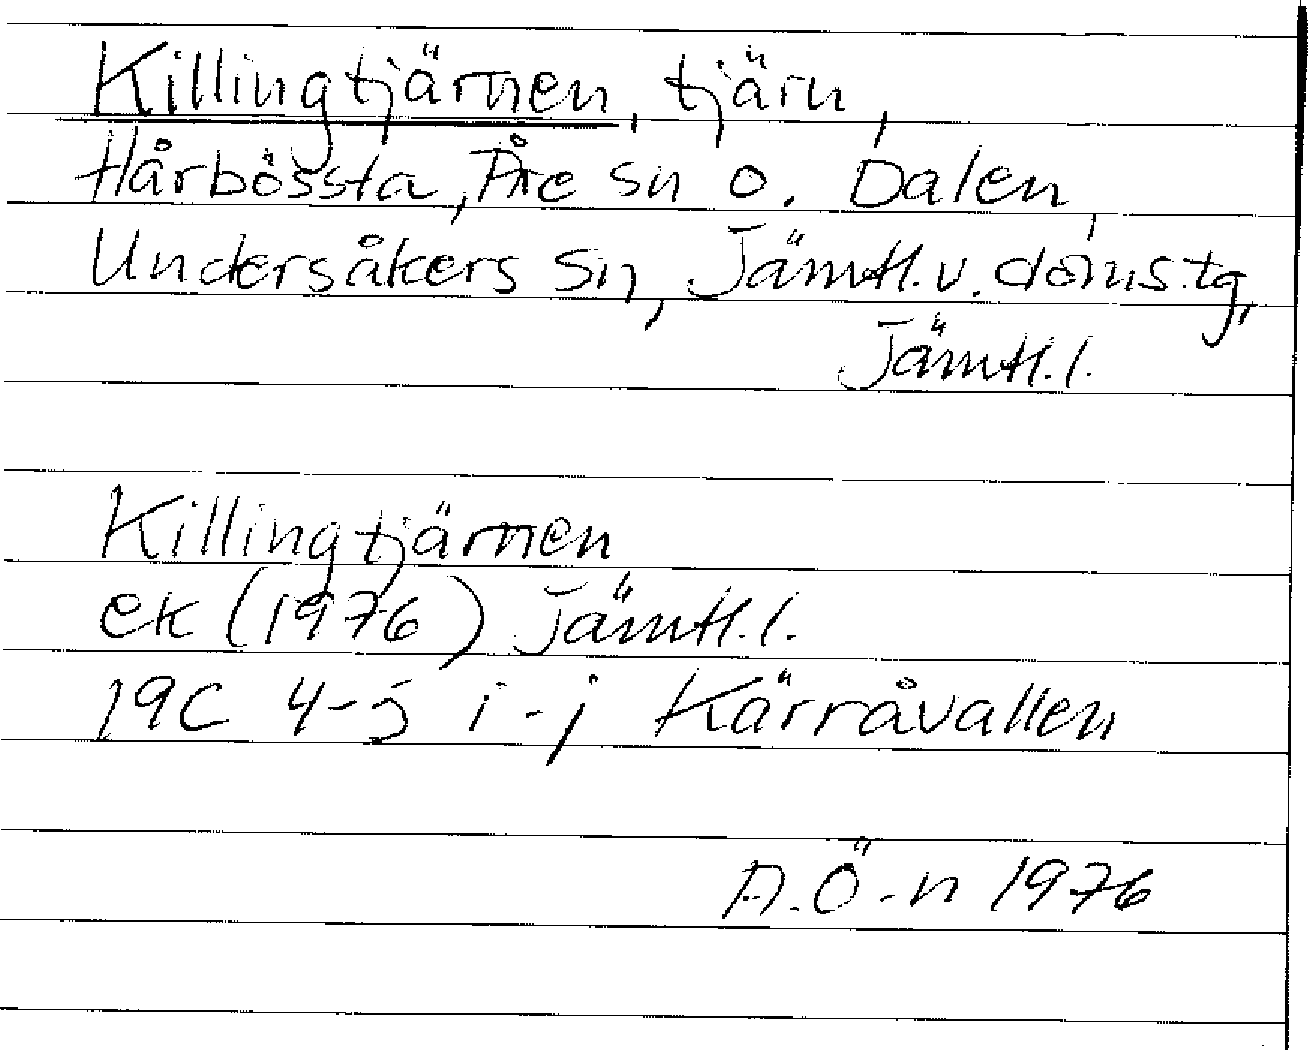 Killingtjärnen, tjärn,
Hårbössta, Åre sn o. Dalen,
Undersåkers sn, Jämtl. v. doms.tg,
Jämtl. l.
Killingtjärnen
ek (1976) Jämtl. l.
19C 4-5 i-j Kärråvallen
A.Ö-n 1976